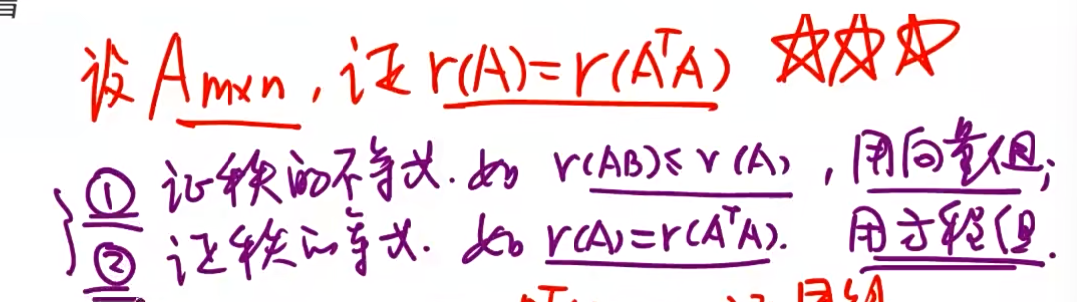 设 Aₘₓₙ, 证 r(A)=r(AᵀA) ☆☆☆
① 证秩的不等式. 如 r(AB)≤r(A), 用向量组;
② 证秩的等式. 如 r(A)=r(AᵀA). 用方程组.